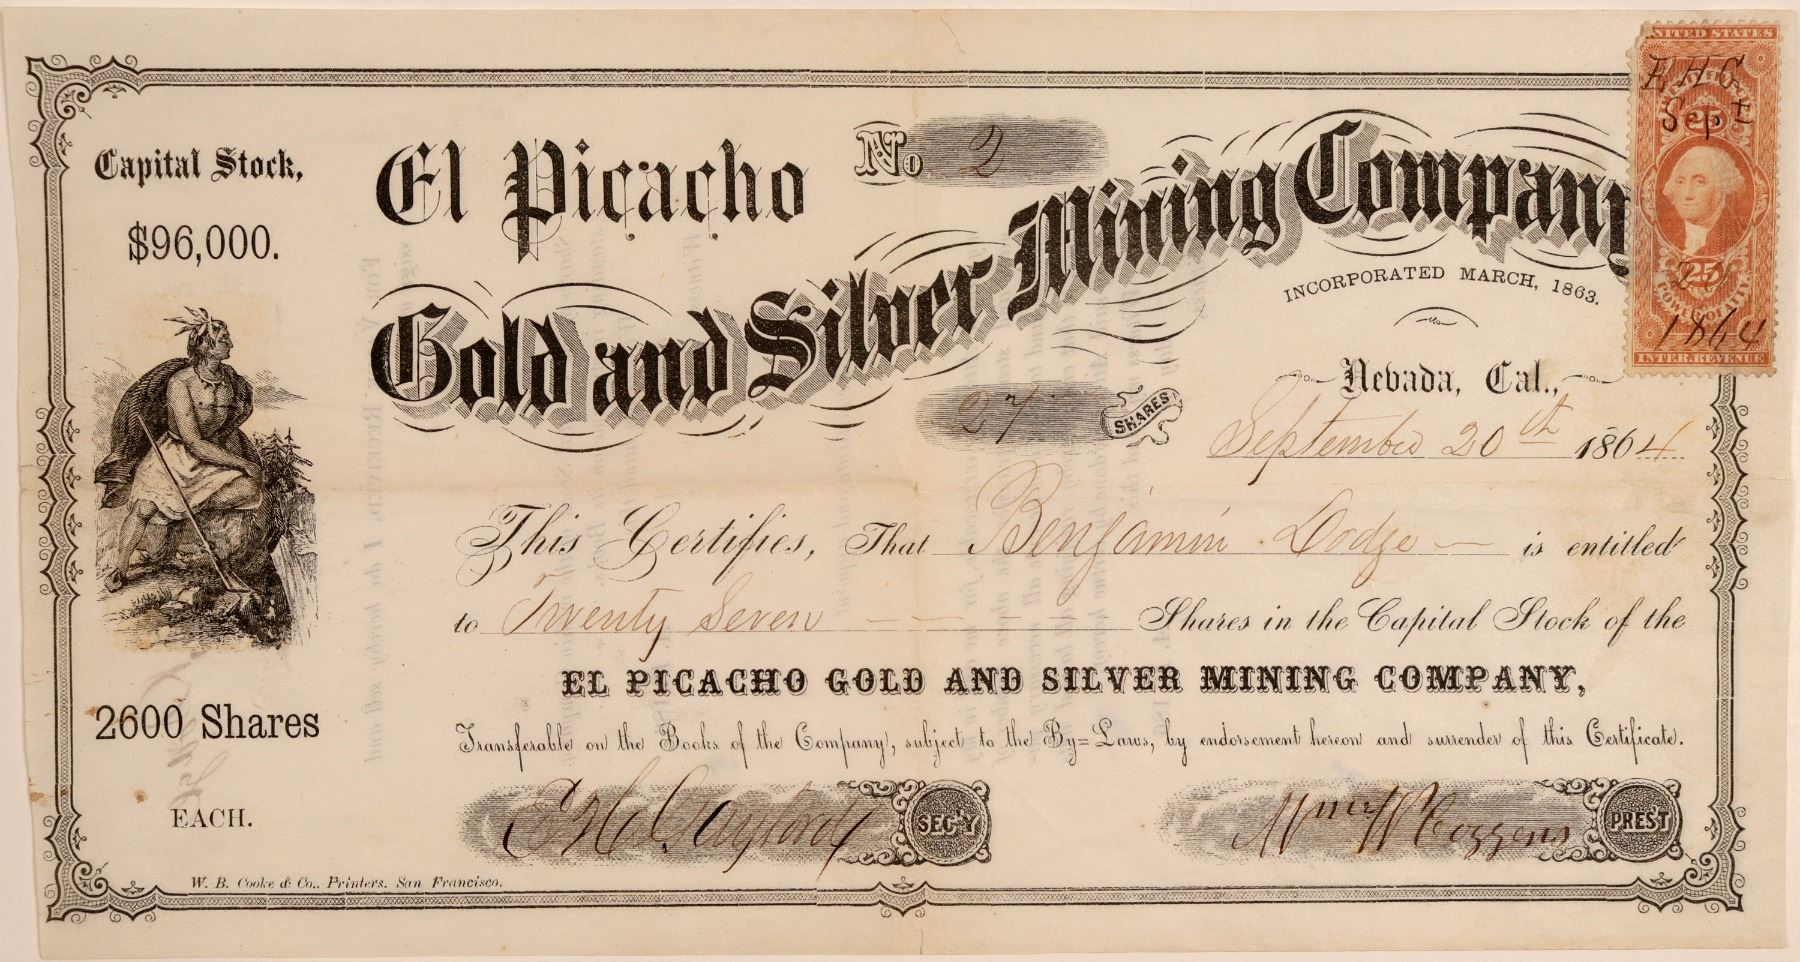 Capital Stock,
$96,000.
2600 Shares
EACH.
El Picacho
No 2
Gold and Silver Mining Company
INCORPORATED MARCH, 1863.
Nevada, Cal.,
27 SHARES
September 20th 1864
This Certifies, That Benjamin Dodge is entitled
to Twenty Seven Shares in the Capital Stock of the
EL PICACHO GOLD AND SILVER MINING COMPANY,
Transferable on the Books of the Company, subject to the By=Laws, by endorsement hereon and surrender of this Certificate.
E H Gaylord SEC'Y
Wm W Cozzens PREST
W. B. Cooke & Co., Printers. San Francisco.
UNITED STATES
E H G
Sept
25
1864
INTER. REVENUE